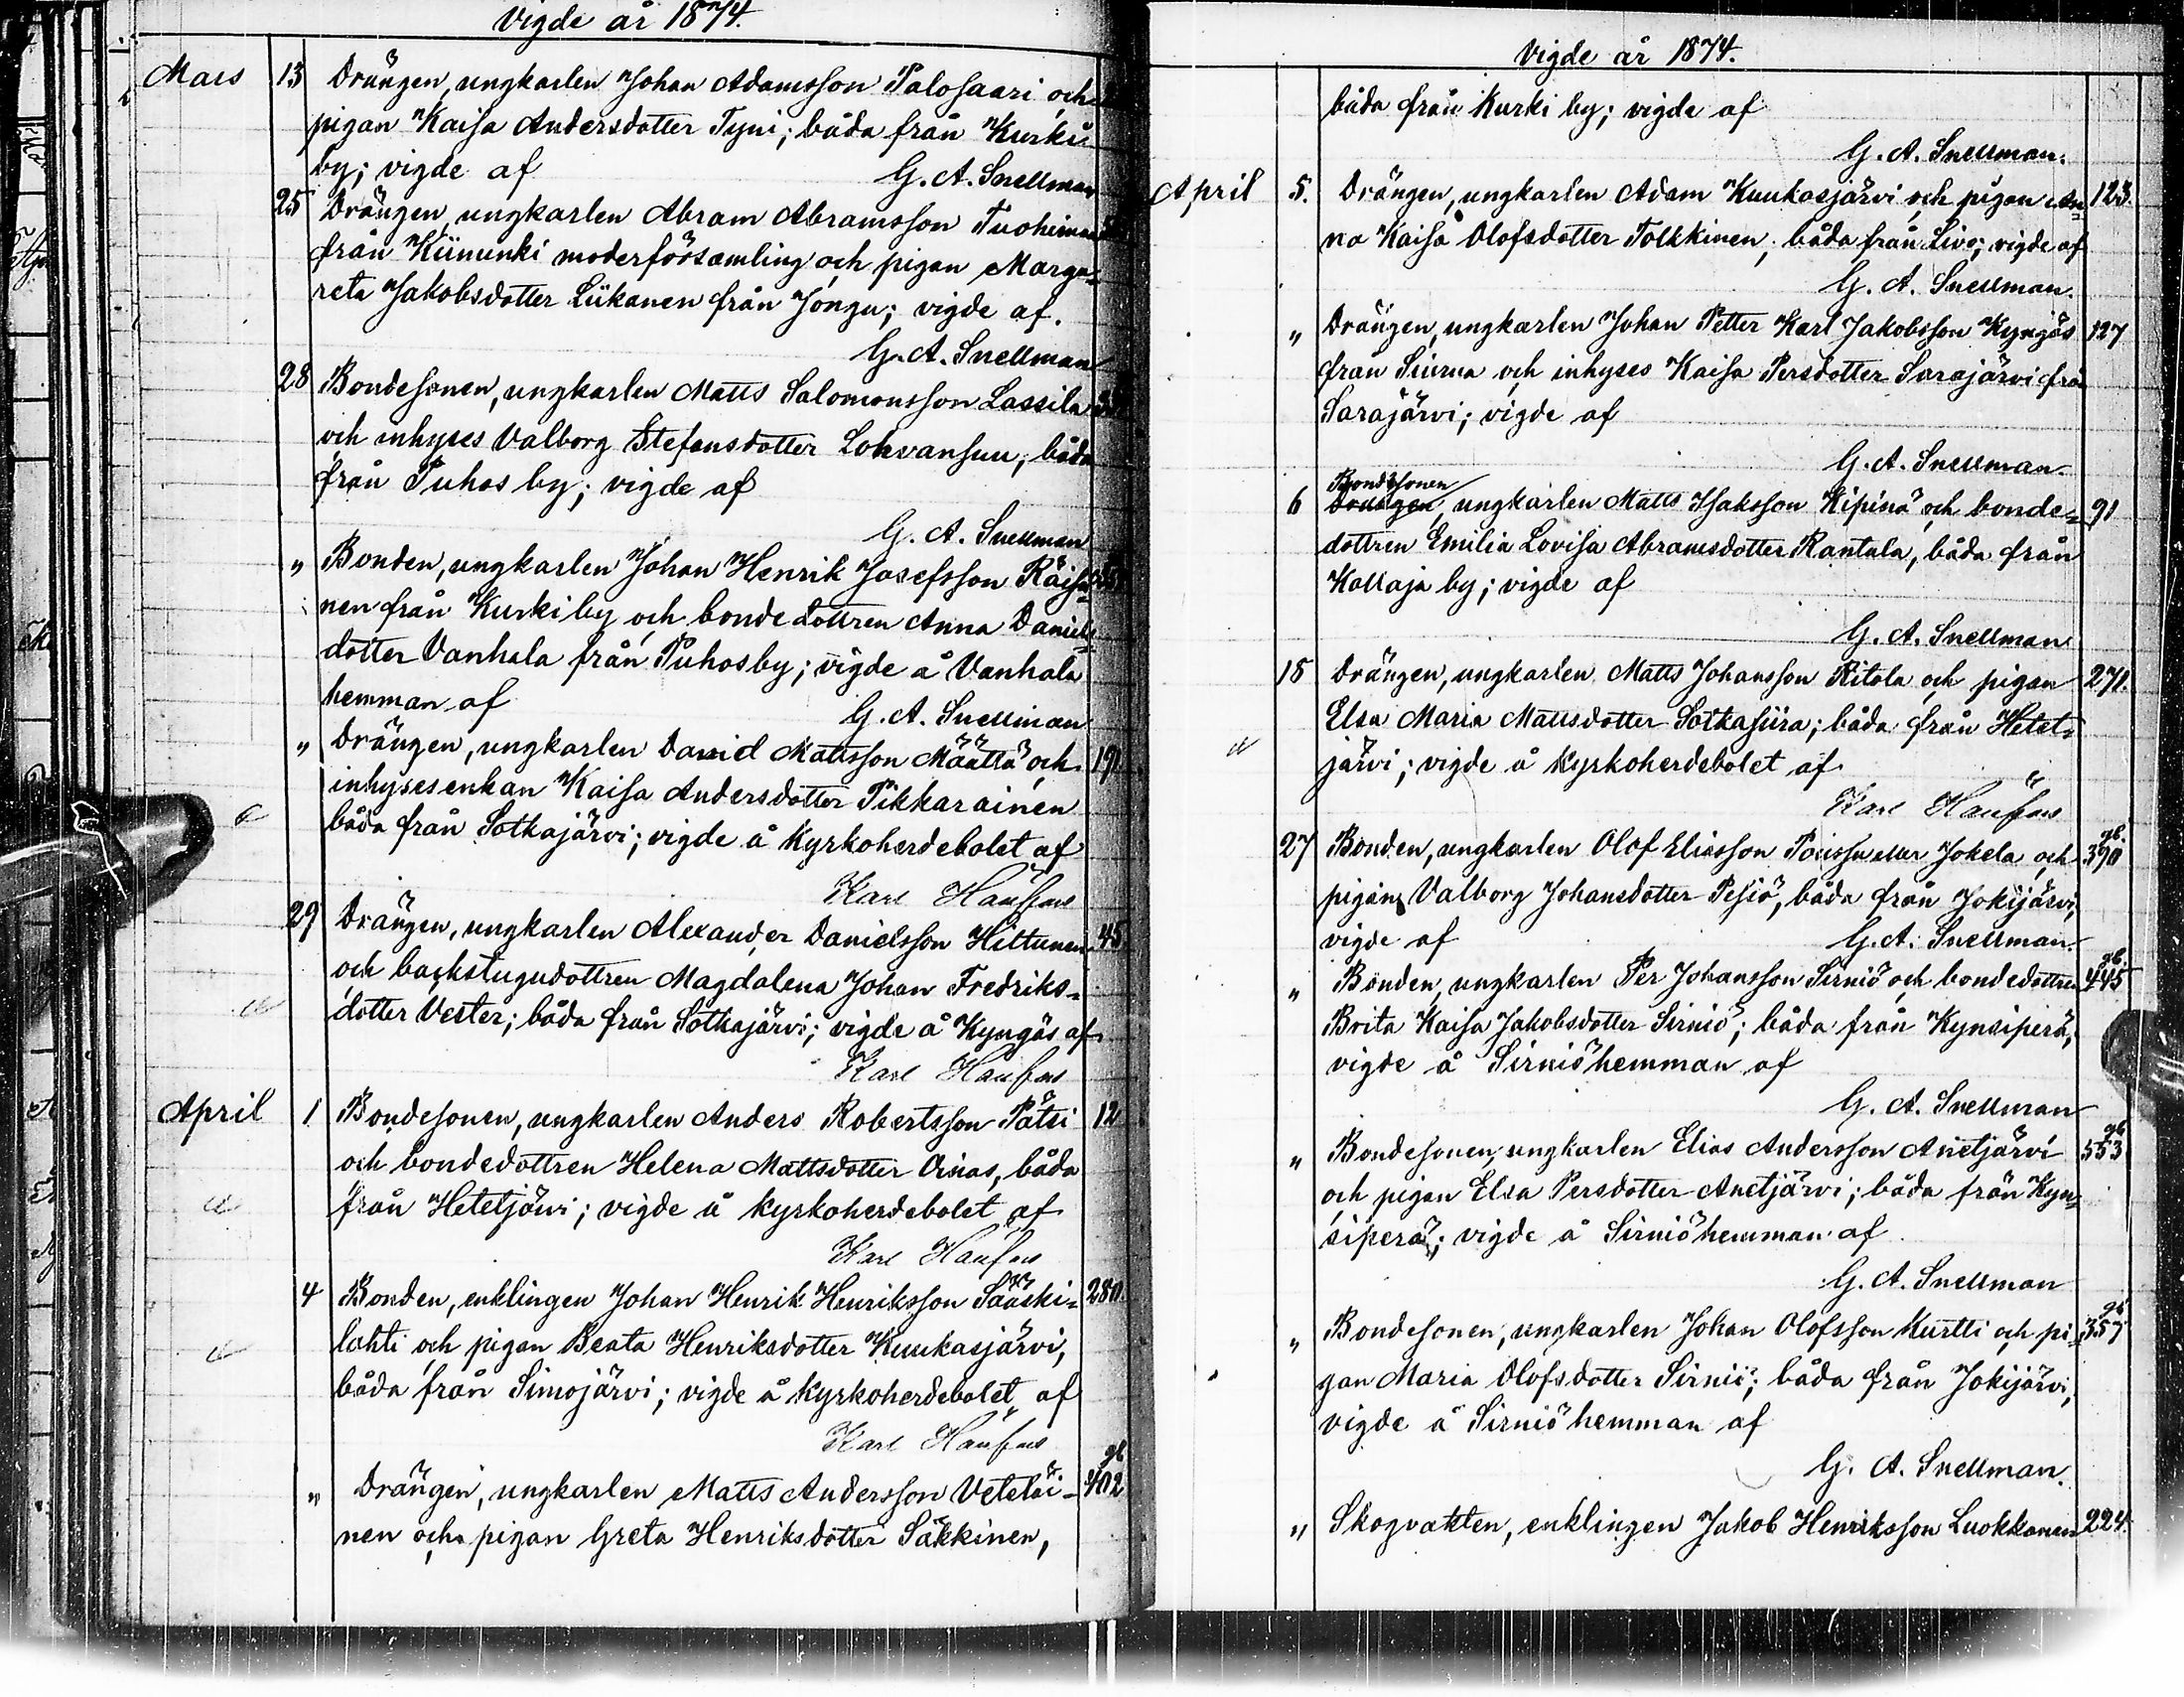 Vigde år 1874.
Mars 13 Drängen, ungkarlen Johan Adamsson Palosaari och
pigan Kaisa Andersdotter Tyni; båda från Kurki
by; vigde af G. A. Snellman
25 Drängen, ungkarlen Abram Abramsson Tuohimaa
från Kiiminki moderförsamling och pigan Marga-
reta Jakobsdotter Liikanen från Jongu; vigde af.
G. A. Snellman
28 Bondesonen, ungkarlen Matts Salomonsson Lassila
och inhyses Valborg Stefansdotter Lohvansuu, båda
från Puhos by; vigde af
G. A. Snellman
" Bonden, ungkarlen Johan Henrik Josefsson Räisä-
nen från Kurki by och bondedottren Anna Daniels-
dotter Vanhala från Puhos by; vigde å Vanhala
hemman af G. A. Snellman
" Drängen, ungkarlen David Mattsson Määttä och 19
inhysesenkan Kaisa Andersdotter Pikkarainen
båda från Sotkajärvi; vigde å Kyrkoherdebolet af
Karl
29 Drängen, ungkarlen Alexander Danielsson Hiltunen 45
och backstugudottren Magdalena Johan Fredriks-
dotter Vester; båda från Sotkajärvi; vigde å Kyngäs af
Karl
April 1 Bondesonen, ungkarlen Anders Robertsson Pätsi 12
och bondedottren Helena Mattsdotter Oinas, båda
från Hetetjärvi; vigde å kyrkoherdebolet af
Karl
4 Bonden, enklingen Johan Henrik Henriksson Sääski- 280.
lahti och pigan Beata Henriksdotter Kuukasjärvi,
båda från Simojärvi; vigde å kyrkoherdebolet af
Karl
gb
" Drängen, ungkarlen Matts Andersson Veteläi- 402
nen och pigan Greta Henriksdotter Säkkinen,
Vigde år 1874.
båda från Kurki by; vigde af
G. A. Snellman.
April 5. Drängen, ungkarlen Adam Kuukasjärvi och pigan An- 123.
na Kaisa Olofsdotter Tolkkinen, båda från Livo; vigde af
G. A. Snellman.
" Drängen, ungkarlen Johan Petter Karl Jakobsson Kyngäs 127
från Siurua och inhyses Kaisa Persdotter Sarajärvi från
Sarajärvi; vigde af
G. A. Snellman.
Bondesonen
6 Drängen, ungkarlen Matts Isaksson Kipinä och bonde- 91
dottren Emilia Lovisa Abramsdotter Rantala, båda från
Kollaja by; vigde af
G. A. Snellman
18 Drängen, ungkarlen Matts Johansson Ritola och pigan 271.
Elsa Maria Mattsdotter Sotkasiira; båda från Hetet-
järvi; vigde å kyrkoherdebolet af
Karl
gb.
27 Bonden, ungkarlen Olof Eliasson Poussu eller Jokela och 390
pigan Valborg Johansdotter Pesiö, båda från Jokijärvi,
vigde af G. A. Snellman.
gb.
" Bonden, ungkarlen Per Johansson Sirniö och bondedottren 445
Brita Kaisa Jakobsdotter Sirniö; båda från Kynsiperä,
vigde å Sirniö hemman af
G. A. Snellman
gb
" Bondesonen, ungkarlen Elias Andersson Anetjärvi 553
och pigan Elsa Persdotter Anetjärvi; båda från Kyn-
siperä; vigde å Sirniö hemman af
G. A. Snellman
gb
" Bondesonen, ungkarlen Johan Olofsson Kurtti och pi- 357
gan Maria Olofsdotter Sirniö; båda från Jokijärvi,
vigde å Sirniö hemman af
G. A. Snellman.
" Skogvakten, enklingen Jakob Henriksson Luokkanen 224.